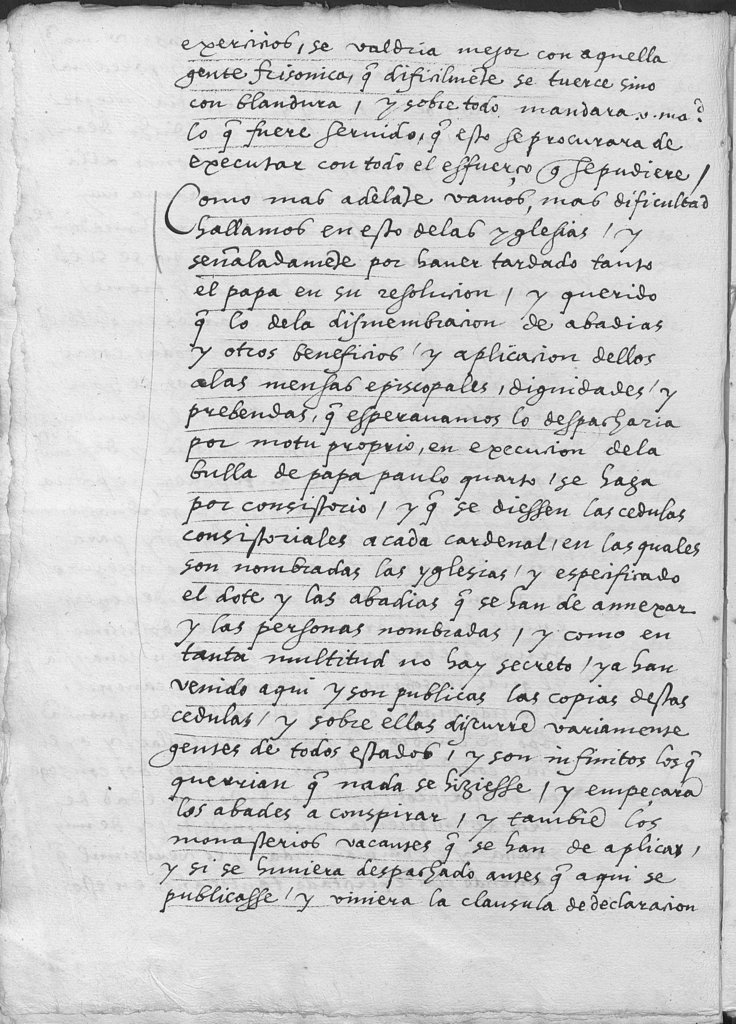 exercicios, se valdria mejor con aquella
gente frisonica, q̃ dificilmẽte se tuerce sino
con blandura, / y sobre todo mandara .v. mad.
lo q̃ fuere servido, q̃ esto se procurara de
executar con todo el esfuerço q̃ se pudiere /
Como mas adelãte vamos, mas dificultad
hallamos en esto delas yglesias / y
señaladamẽte por haver tardado tanto
el papa en su resolucion, / y querido
q̃ lo dela dismembracion de abadias
y otros beneficios / y aplicacion dellos
alas mensas episcopales, dignidades / y
prebendas, q̃ esperavamos lo despacharia
por motu proprio, en execucion dela
bulla de papa paulo quarto, se haga
por consistorio, / y q̃ se diessen las cedulas
consistoriales a cada cardenal, en las quales
son nombradas las yglesias / y espeificado
el dote y las abadias q̃ se han de annexar
y las personas nombradas, / y como en
tanta multitud no hay secreto, / ya han
venido aqui y son publicas las copias destas
cedulas, / y sobre ellas discurrẽ variamente
gentes de todos estados, / y son infinitos los q̃
querrian q̃ nada se hiziesse, / y empeçarã
los abades a conspirar, / y tambiẽ los
monasterios vacantes q̃ se han de aplicar,
y si se huviera despachado antes q̃ aqui se
publicasse / y viniera la clausula de declaracion